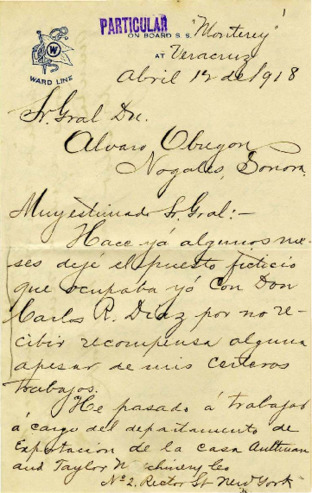 1
PARTICULAR
ON BOARD S. S. "Monterey"
AT Veracruz
W
WARD LINE
Abril 12 de 1918
Sr. Gral Dn.
Alvaro Obregon
Nogales, Sonora.
Muy estimado Sr. Gral:-
Hace yá algunos me-
ses dejé el puesto ficticio
que ocupaba yó con Don
Carlos R. Diaz por no re-
cibir recompensa alguna
apesar de mis certeros
trabajos.
He pasado á trabajar
á cargo del departamento de
Exportacion de la casa Aultman
and Taylor
No 2, Rector St New York